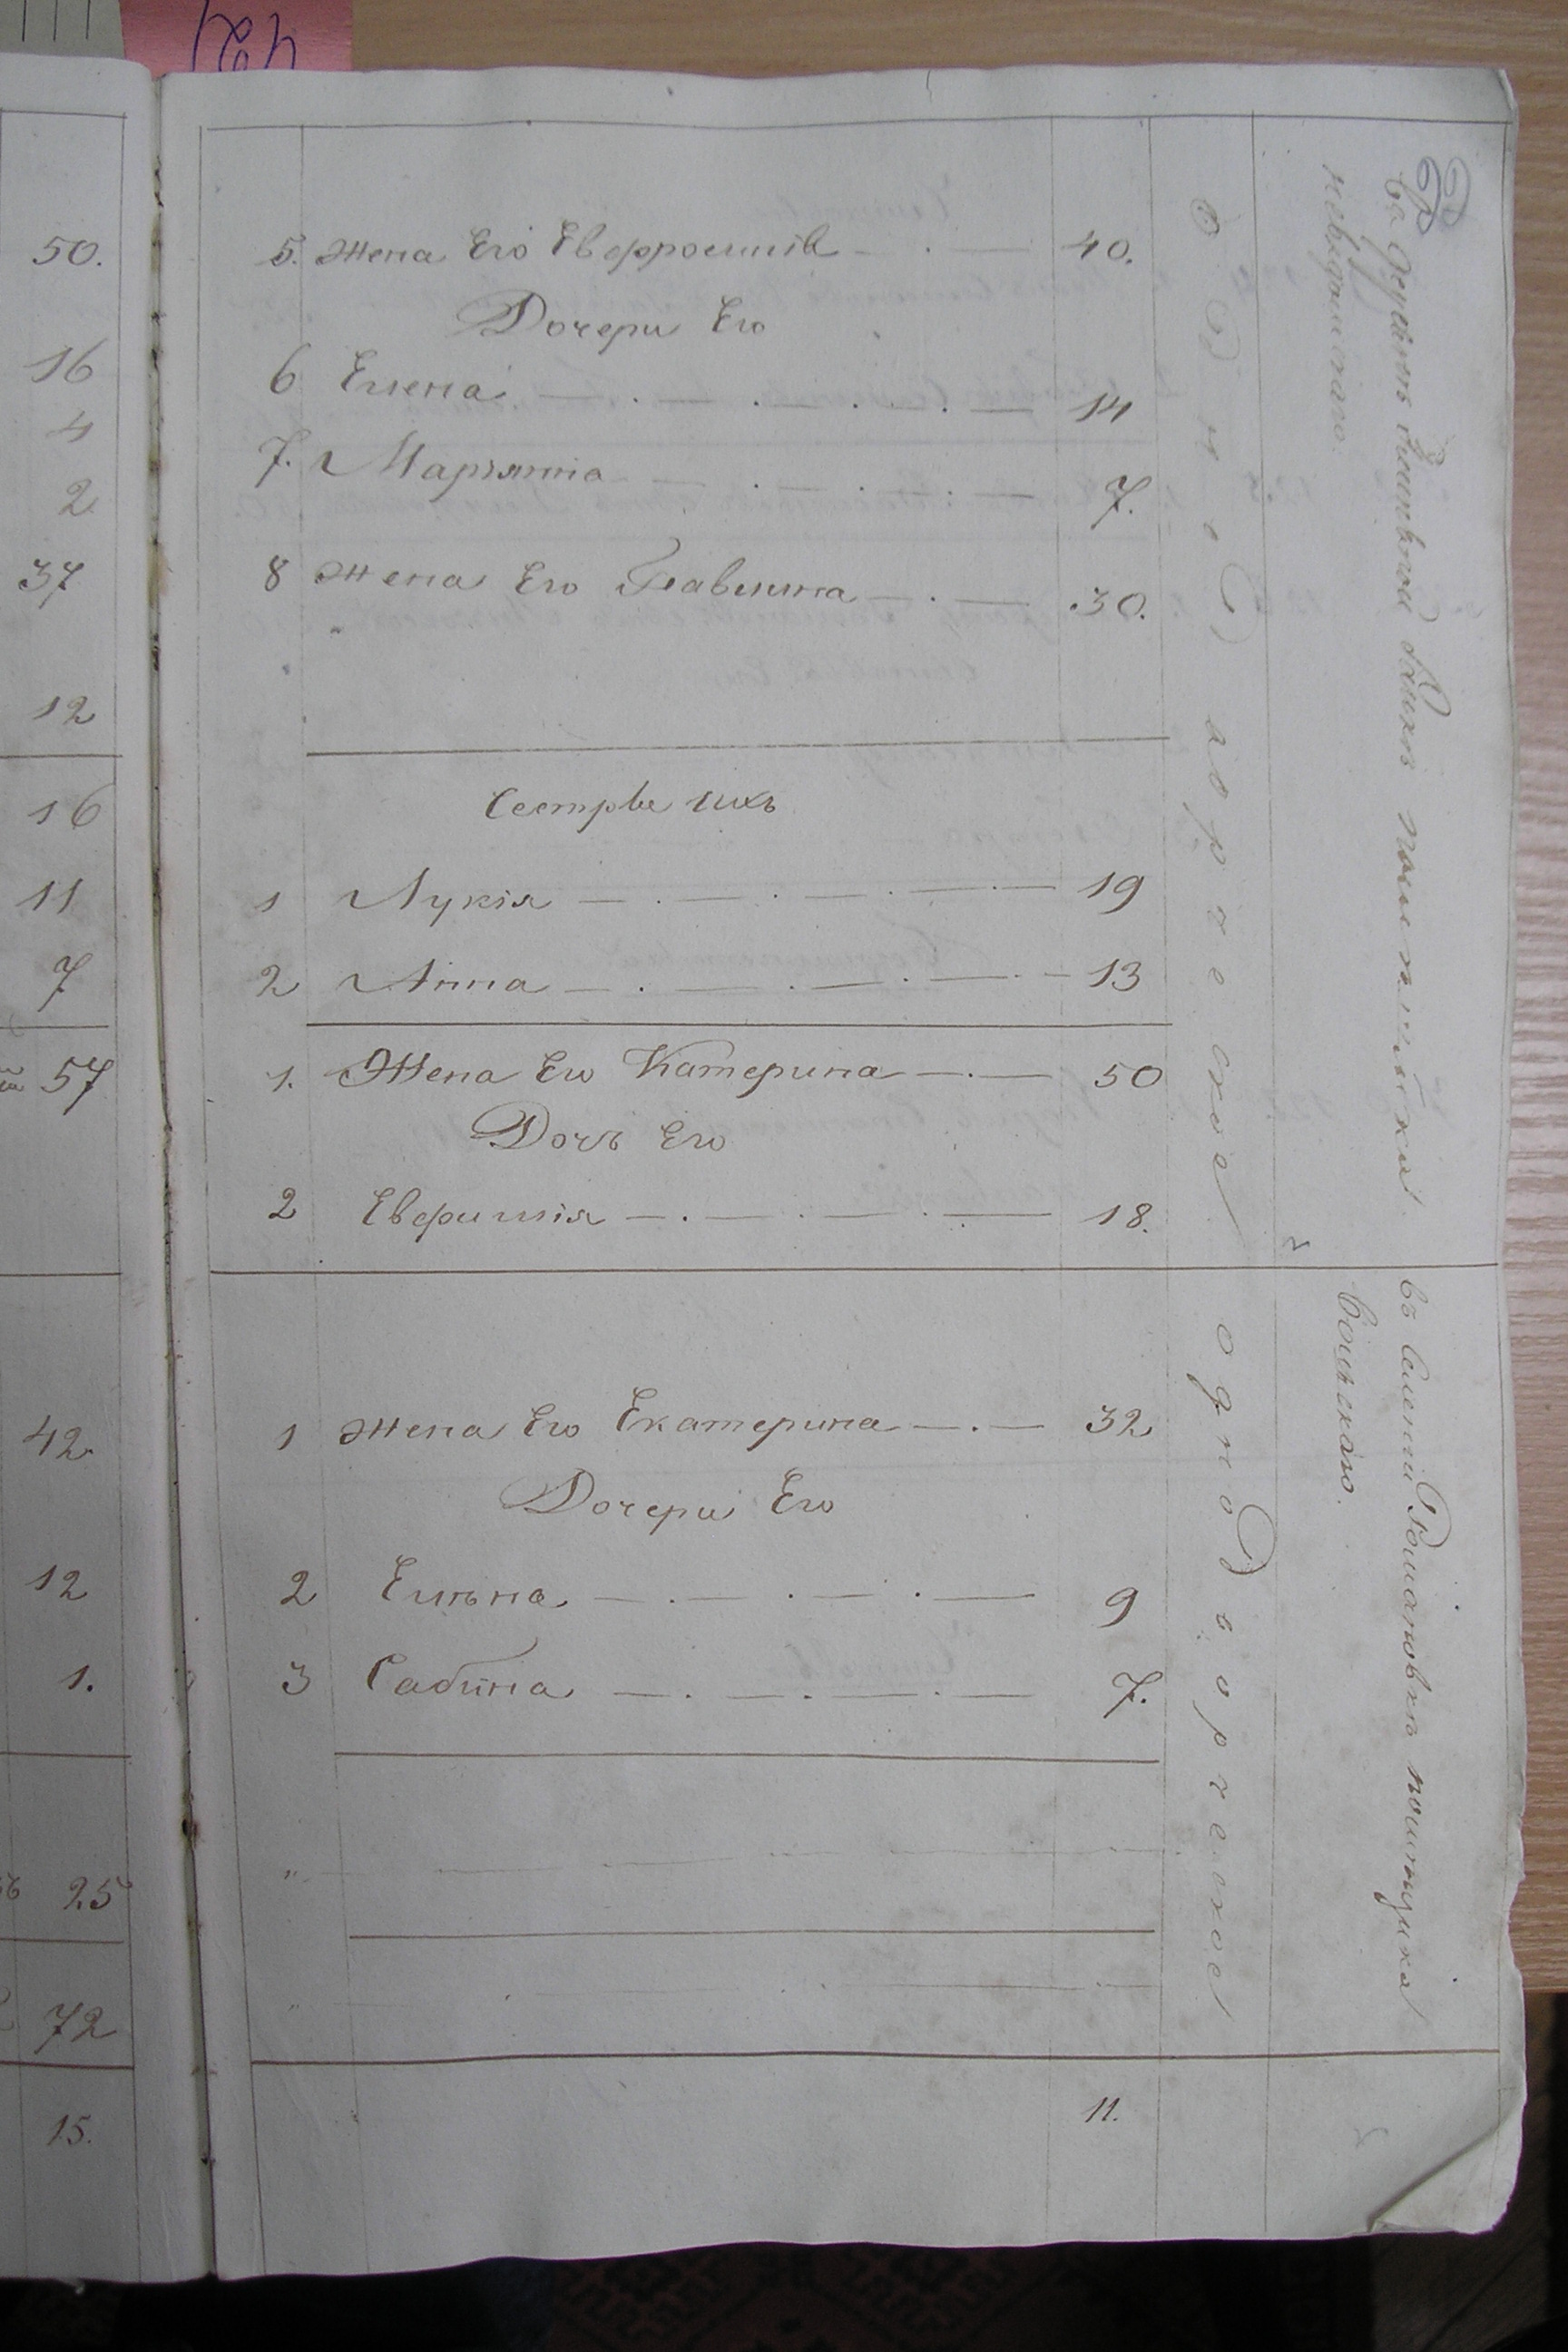 424
50.
16
4
2
37
12
16
11
7
57
42.
12
1.
25
72
15.
5. Жена Его Евфросинiя — . — 40.
Дочери Его
6 Елена — . — . — . — . — 14
7. Марьянна — . — . — . — 7.
8 Жена Его Павлина — . — 30.
Сестры ихъ
1 Лукiя — . — . — . — 19
2 Анна — . — . — . — 13
1. Жена Его Катерина — . — 50
Дочь Его
2 Евфимiя — . — . — . — 18.
1 Жена Его Екатерина — . — 32
Дочери Его
2 Елѣна — . — . — . — 9
3 Сабина — . — . — . — 7.
"
"
11.
однодворческое
однодворческое
Въ деревнѣ помѣщика
въ селенiи Романовкѣ помѣщика